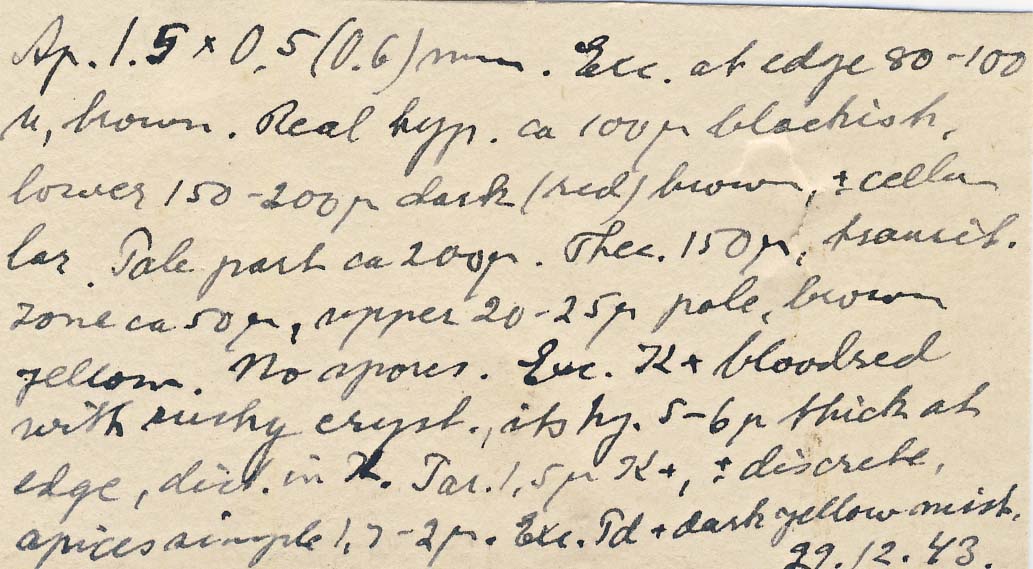 Ap. 1.5 × 0.5 (0.6) mm. Exc. at edge 80-100
µ, brown. Real hyp. ca 100µ blackish,
lower 150-200µ dark (red) brown, ± cellu
lar. Pale part ca 200µ. Thec. 150µ, transit.
zone ca 50µ, upper 20-25µ pale, brown
yellow. No spores. Exc. K+ bloodred
with cryst., its hy. 5-6µ thick at
edge, dist. in K. Par. 1,5µ K+, ± discrete,
apices simple 1,7-2µ. Exc. Pd + dark yellow mist.
29.12.43.